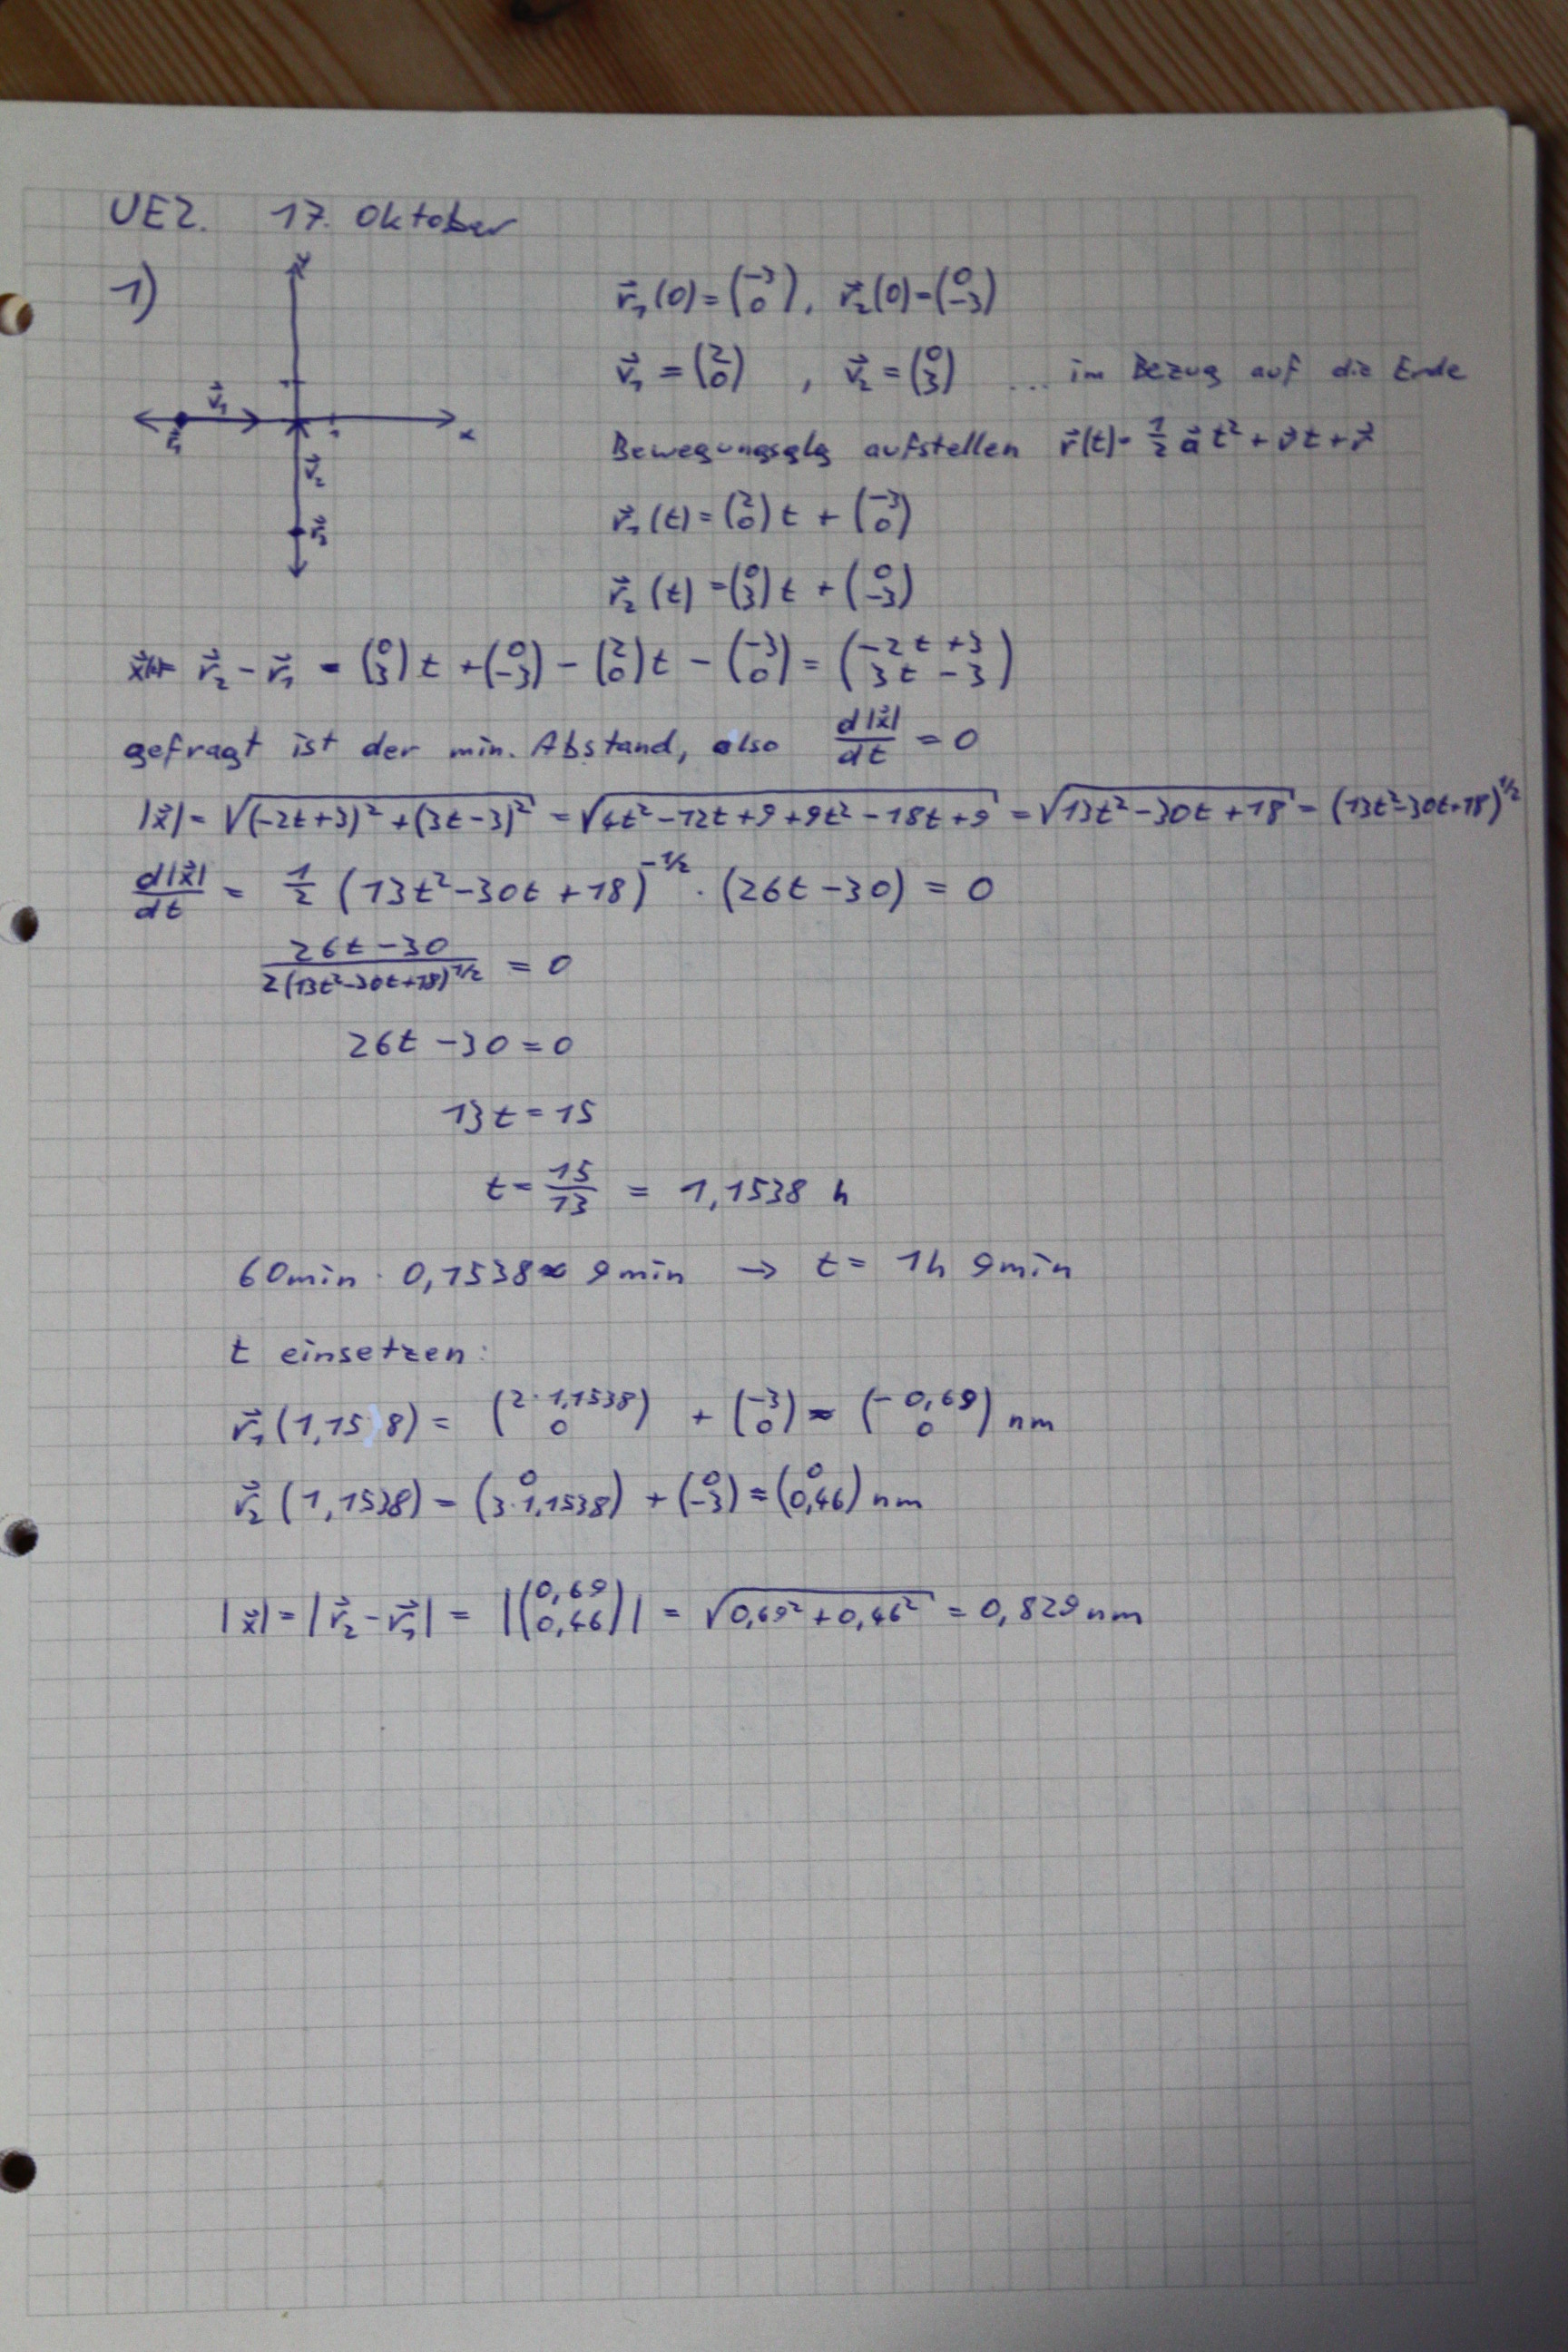 UE2. 17. Oktober
1)
y
x
1
v⃗₁
r⃗₁
v⃗₂
r⃗₂
r⃗₁(0) = (−3 0), r⃗₂(0) = (0 −3)
v⃗₁ = (2 0) , v⃗₂ = (0 3) ... im Bezug auf die Erde
Bewegungsglg aufstellen r⃗(t) = 1/2 a⃗ t² + v⃗ t + r⃗
r⃗₁(t) = (2 0) t + (−3 0)
r⃗₂(t) = (0 3) t + (0 −3)
x⃗(t) = r⃗₂ − r⃗₁ = (0 3) t + (0 −3) − (2 0) t − (−3 0) = (−2t + 3 3t − 3)
gefragt ist der min. Abstand, also d|x⃗|/dt = 0
|x⃗| = √((−2t+3)² + (3t−3)²) = √(4t² − 12t + 9 + 9t² − 18t + 9) = √(13t² − 30t + 18) = (13t²−30t+18)^1/2
d|x⃗|/dt = 1/2 (13t² − 30t + 18)^−1/2 · (26t − 30) = 0
26t − 30 / 2(13t²−30t+18)^1/2 = 0
26t − 30 = 0
13t = 15
t = 15/13 = 1,1538 h
60min · 0,1538 ≈ 9min → t = 1h 9min
t einsetzen:
r⃗₁(1,15 8) = (2 · 1,1538 0) + (−3 0) = (−0,69 0) nm
r⃗₂(1,1538) = (0 3·1,1538) + (0 −3) = (0 0,46) nm
|x⃗| = |r⃗₂ − r⃗₁| = |(0,69 0,46)| = √(0,69² + 0,46²) = 0,829 nm